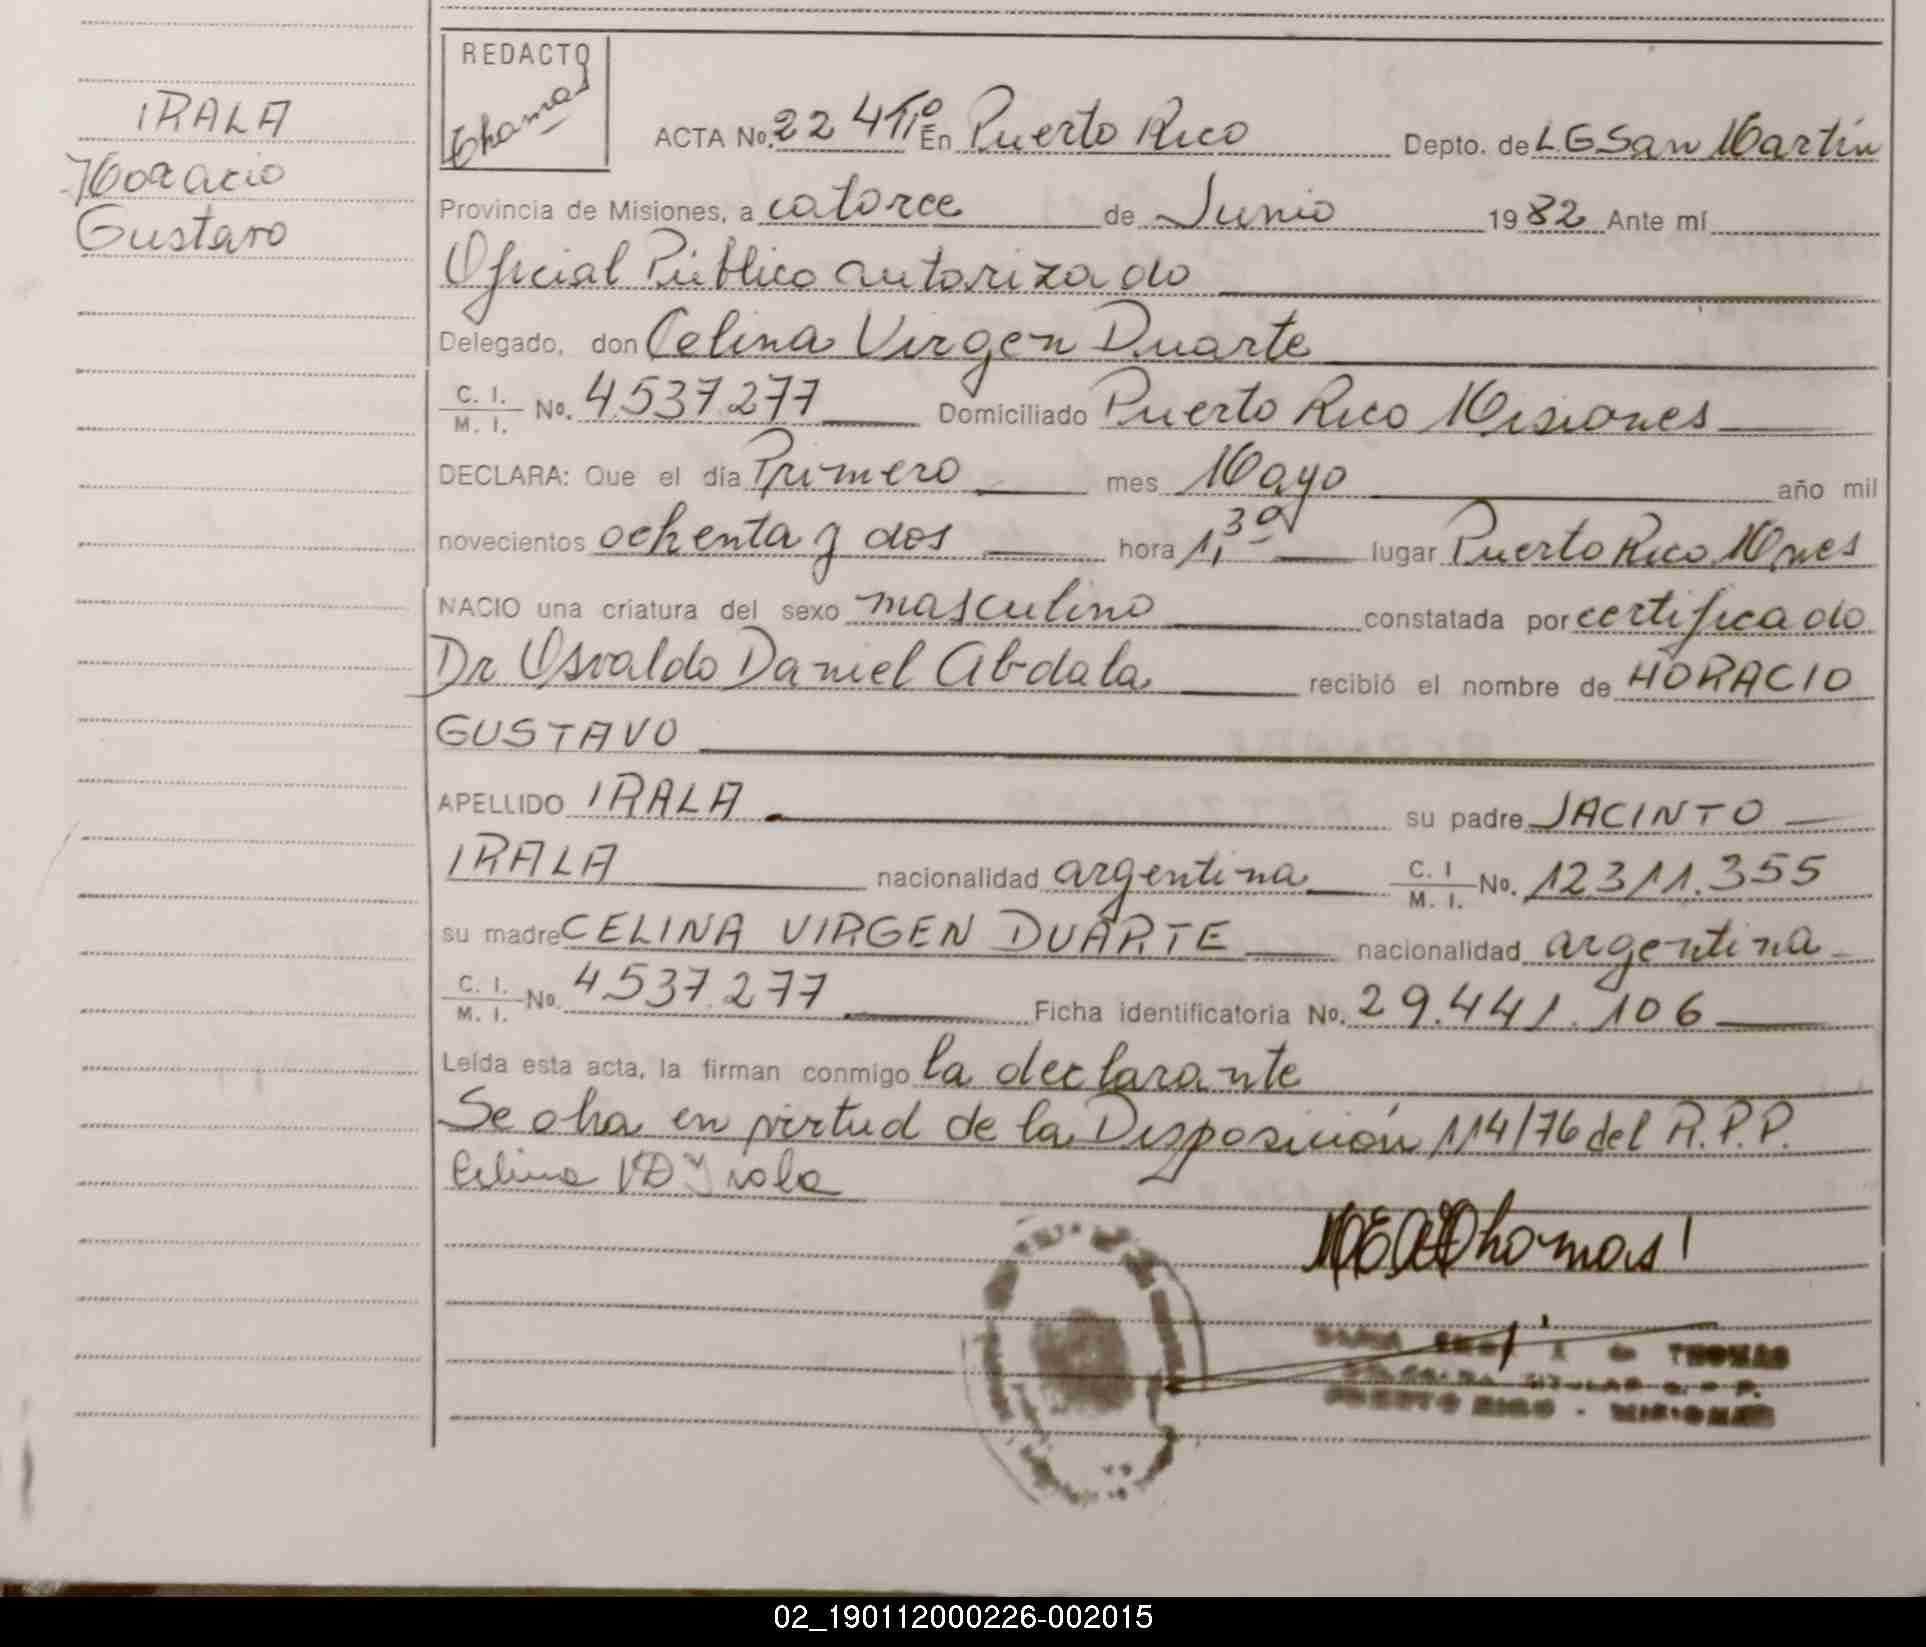 IRALA
Horacio
Gustavo
REDACTO
Thomas
ACTA No. 224 Tº En Puerto Rico Depto. de LGSan Martín
Provincia de Misiones, a catorce de Junio 1982 Ante mí
Oficial Público autorizado
Delegado, don Celina Virgen Duarte
C. I. / M. I. No. 4537.277 Domiciliado Puerto Rico Misiones
DECLARA: Que el día Primero mes Mayo año mil
novecientos ochenta y dos hora 1,30 lugar Puerto Rico Mnes
NACIO una criatura del sexo masculino constatada por certificado
Dr Osvaldo Daniel Abdala recibió el nombre de HORACIO
GUSTAVO
APELLIDO IRALA su padre JACINTO
IRALA nacionalidad argentina C. I / M. I. No. 12311.355
su madre CELINA VIRGEN DUARTE nacionalidad argentina
C. I. / M. I. No. 4537.277 Ficha identificatoria No. 29.441.106
Leída esta acta, la firman conmigo la declarante
Se oha en virtud de la Disposición 114/76 del R.P.P.
Celina VD Irala
Thomas
de THOMAS
PUERTO RICO - MISIONES
02_190112000226-002015